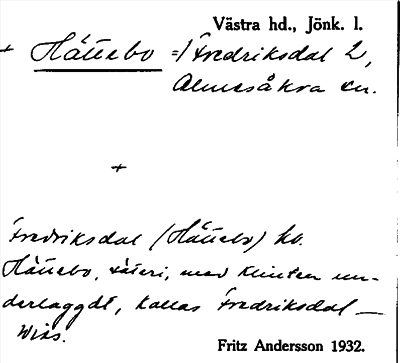 Västra hd., Jönk. l.
+ Hättebo =/ Fredriksdal 2,
Almesåkra sn.
+
Fredriksdal (Hättebo) hb.
Hättebo, säteri, med Klinten un-
derlaggdt, kallas Fredriksdal —
Wiss.
Fritz Andersson 1932.